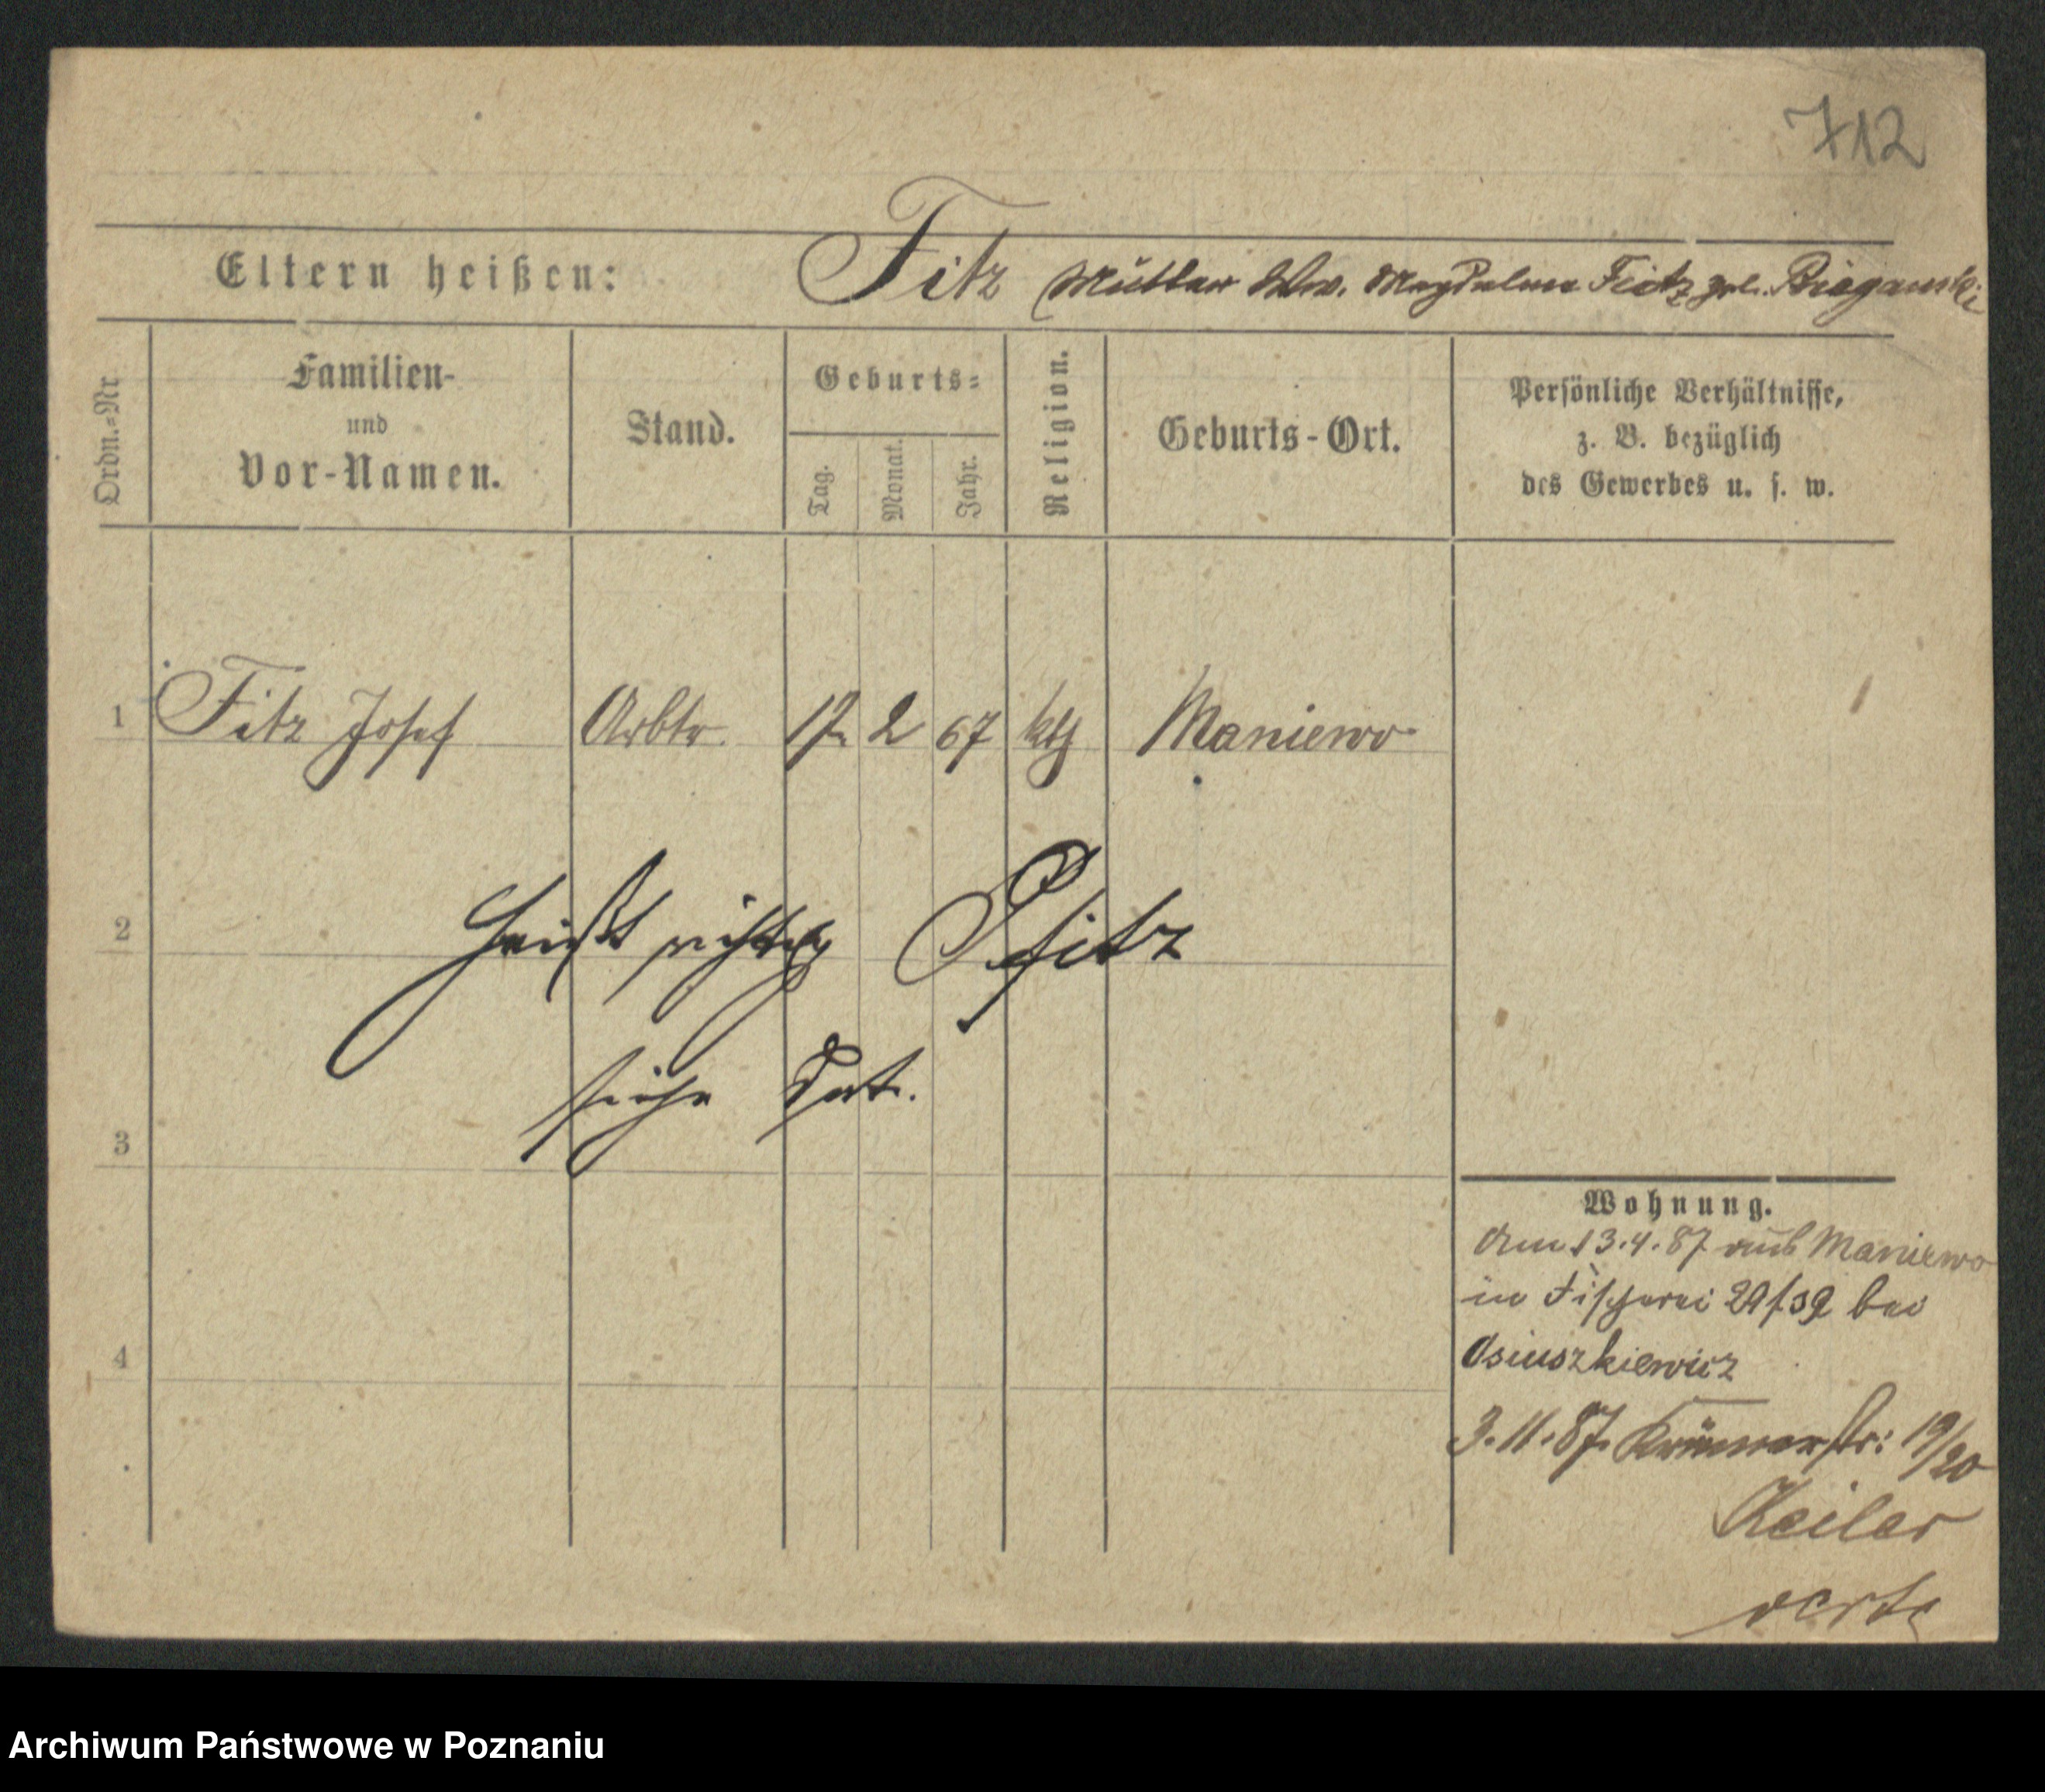 712
Eltern heißen: Fitz Mutter Ww. Magdalena Fietz geb. Bieganski
Ordn.=Nr.
Familien-
und
Vor-Namen.
Stand.
Geburts=
Tag.
Monat.
Jahr.
Religion.
Geburts-Ort.
Persönliche Verhältnisse,
z. B. bezüglich
des Gewerbes u. s. w.
1 Fitz Josef Arbtr. 17 2 67 ktg Maniewo
2 heißt richtig Pfitz
siehe dort.
3
4
Wohnung.
Am 13.4.87 aus Maniewo
in Fischerei 29/39 bei
Osiuszkiewicz
3.11.87. str: 19/20
Keiler
verte
Archiwum Państwowe w Poznaniu